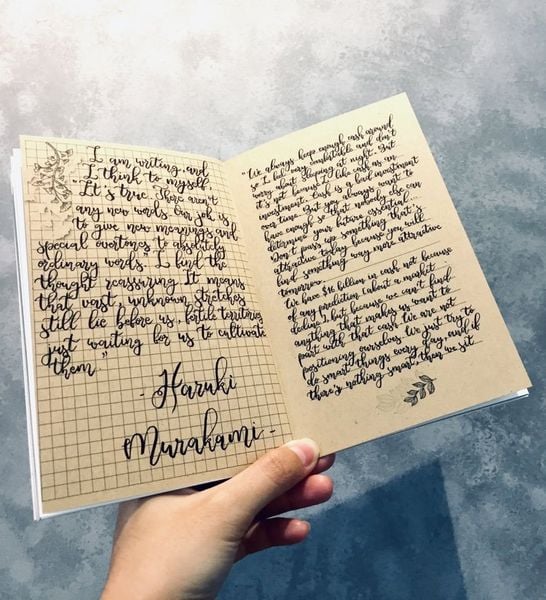 I am writing and
I think to myself,
"It's true. There aren't
any new words. Our job is
to give new meanings and
special overtones to absolutely
ordinary words." I find the
thought reassuring. It means
that vast, unknown stretches
still lie before us, fertile territories
just waiting for us to cultivate
them."
- Haruki
Murakami -
"We always hope enough cash around
so I feel very comfortable and don't
worry about sleeping at night. But
it's not because I like cash as an
investment. Cash is a bad investment
over time. But you always want to
have enough so that nobody else can
determine your future essential...
Don't pass up something that's
attractive today because you will
find something way more attractive
tomorrow.
We have $16 billion in cash not because
of any prediction about a market
decline, but because we can't find
anything that makes us want to
part with that cash. We are not
positioning ourselves. We just try to
do smart things every day and if
there's nothing smart, then we sit